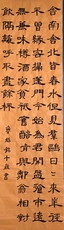 舍南舍北皆春水但見羣鷗日日來花徑
不曾緣客掃蓬門今始為君開盤飧市遠
無兼味樽酒家貧只舊醅肯與鄰翁相對
飲隔籬呼取盡餘杯